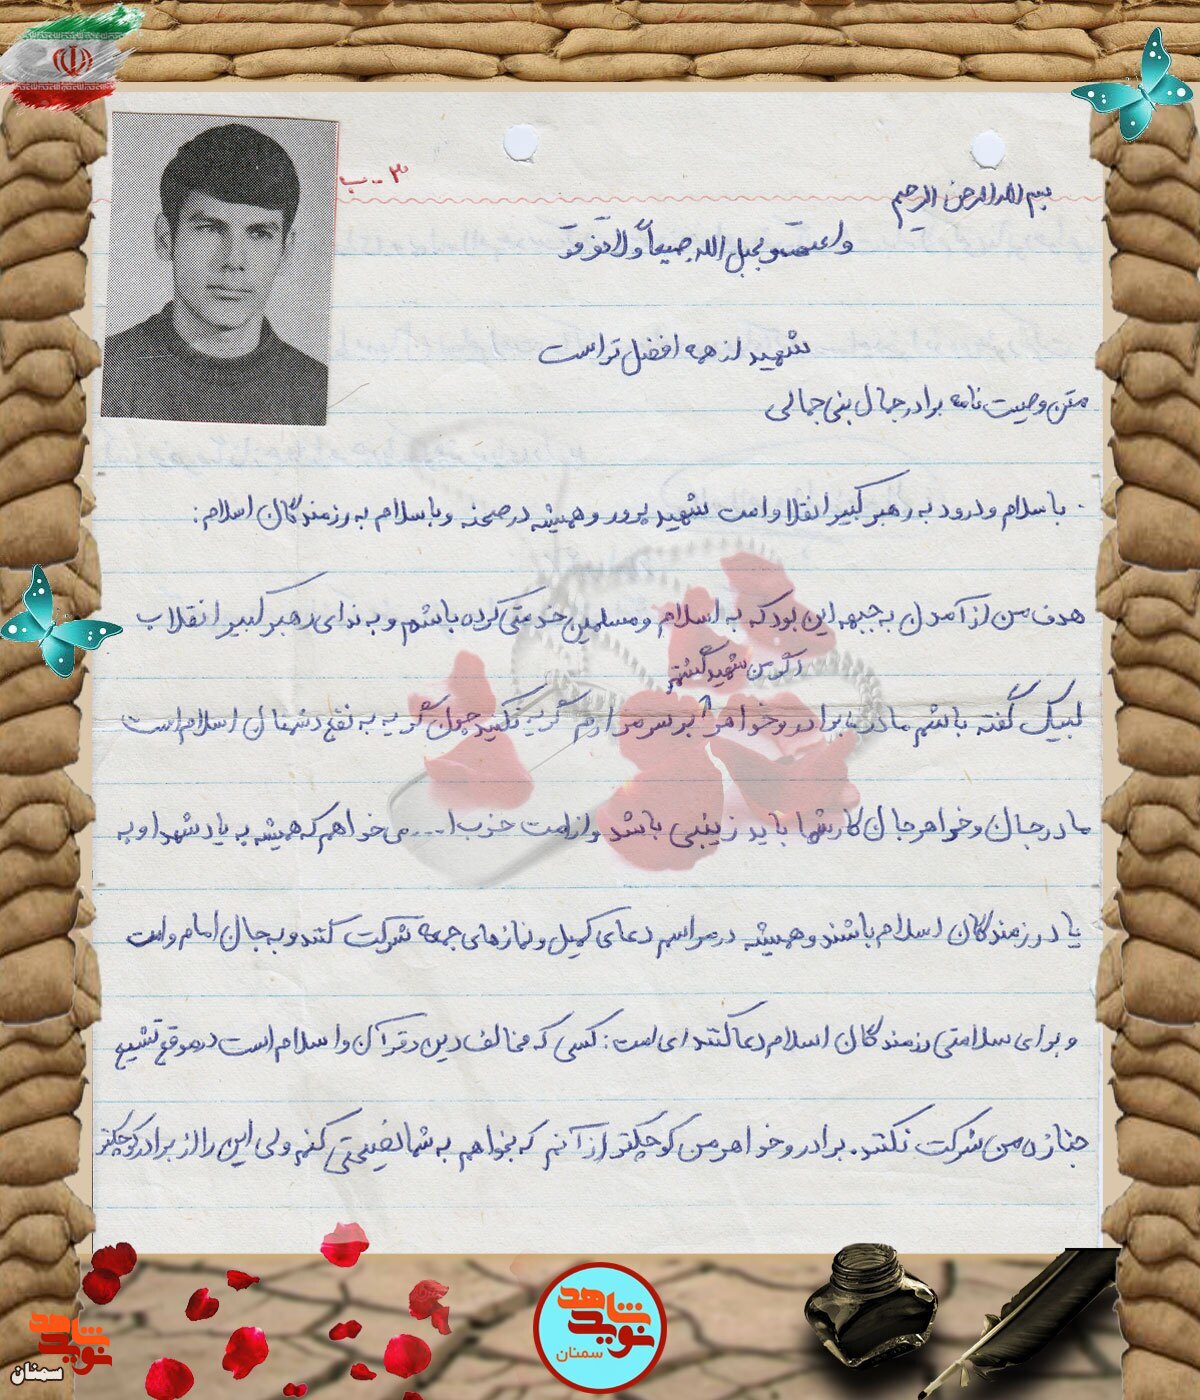 ۳-ب
بسم الله الرحمن الرحیم
واعتصمو بحبل الله جمیعاً ولا تفرقو
شهید از همه افضل تر است
متن وصیت نامه برادر جمال بنی جمالی
با سلام و درود به رهبر کبیر انقلاب و امت شهید پرور و همیشه در صحنه و با سلام به رزمندگان اسلام:
هدف من از آمدن به جبهه این بود که به اسلام و مسلمین خدمتی کرده باشم و به ندای رهبر کبیر انقلاب
اگر من شهید گشتم
لبیک گفته باشم مادر برادر و خواهر بر سر مزارم گریه نکنید چون گریه به نفع دشمنان اسلام است
مادر جان و خواهر جان کار شما باید زینبی باشد و از امت حزب ا... می خواهم که همیشه به یاد شهدا و به
یاد رزمندگان اسلام باشند و همیشه در مراسم دعای کمیل و نمازهای جمعه شرکت کنند و به جان امام و امت
و برای سلامتی رزمندگان اسلام دعا کنند ای امت: کسی که مخالف دین و قرآن و اسلام است در موقع تشییع
جنازه من شرکت نکند. برادر و خواهر من کوچکتر از آنم که بخواهم به شما نصیحتی کنم ولی این را از برادر کوچکتر
شاهد
نوید
سمنان
شاهد
نوید
سمنان